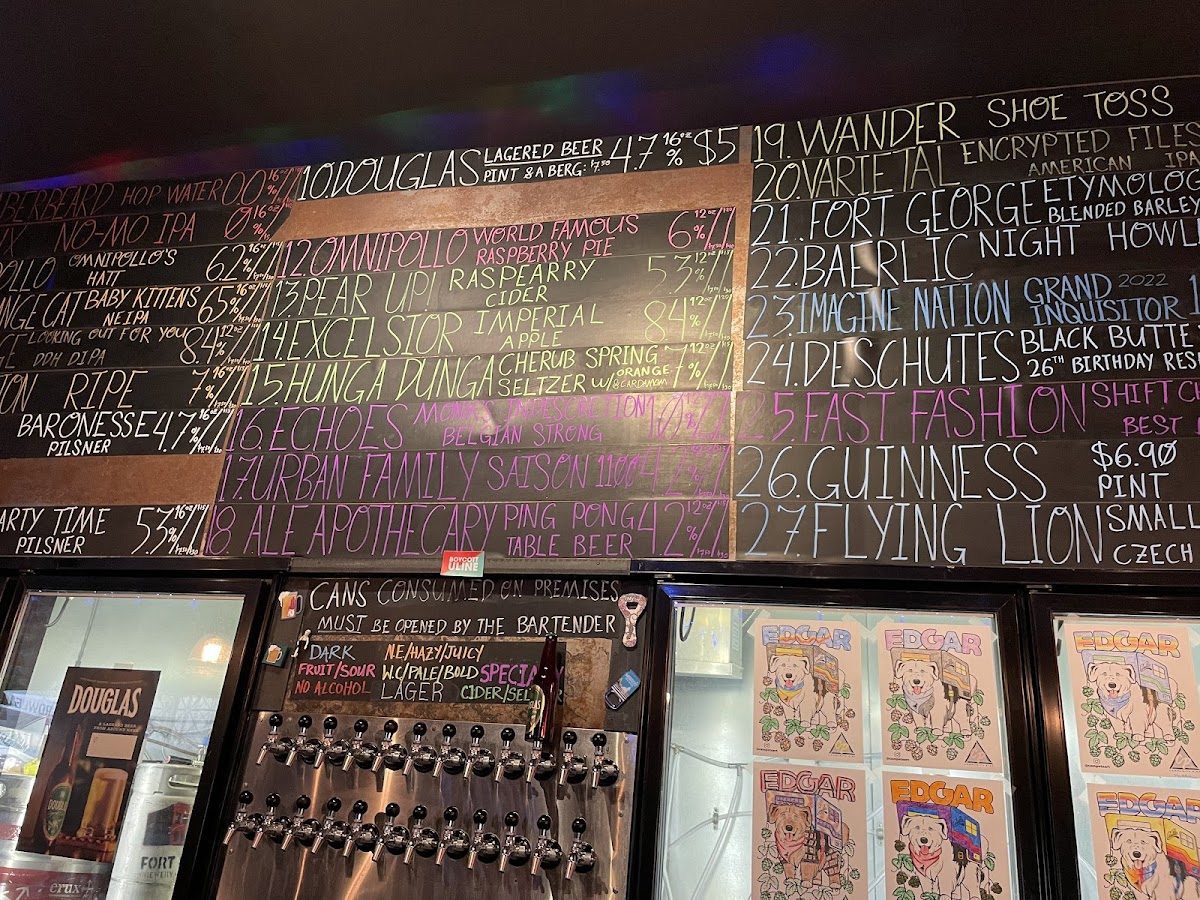 HOP WATER 0.0% 16oz
NO-MO IPA 0% 16oz
OMNIPOLLO'S
HATT 6.2% 16oz
BABY KITTENS
NEIPA 6.5% 16oz
LOOKING OUT FOR YOU
DDH DIPA 8.4% 12oz
RIPE 7% 16oz
BARONESSE
PILSNER 4.7% 16oz
PARTY TIME
PILSNER 5.3% 16oz
10. DOUGLAS LAGERED BEER 4.7% 16oz $5
PINT & A BERG: 7.50
12. OMNIPOLLO WORLD FAMOUS
RASPBERRY PIE 6% 12oz
13. PEAR UP! RASPEARRY
CIDER 5.3% 12oz
14. EXCELSIOR IMPERIAL
APPLE 8.4% 12oz
15. HUNGA DUNGA CHERUB SPRING
SELTZER W/ ORANGE & CARDAMOM 7% 12oz
16. ECHOES
BELGIAN STRONG
17. URBAN FAMILY SAISON 1100 4.2%
18 ALE APOTHECARY PING PONG
TABLE BEER 4.2% 12oz
19. WANDER SHOE TOSS
20. VARIETAL ENCRYPTED FILES
AMERICAN IPA
21. FORT GEORGE ETYMOLOG
BLENDED BARLEY
22. BAERLIC NIGHT HOWL
23. IMAGINE NATION GRAND 2022
INQUISITOR
24. DESCHUTES BLACK BUTTE
26TH BIRTHDAY RES
25 FAST FASHION SHIFT
BEST
26. GUINNESS $6.90
PINT
27 FLYING LION SMALL
CZECH
BOYCOTT
ULINE
CANS CONSUMED ON PREMISES
MUST BE OPENED BY THE BARTENDER
DARK NE/HAZY/JUICY
FRUIT/SOUR W.C/PALE/BOLD
NO ALCOHOL LAGER
DOUGLAS
A LAGERED BEER
FORT
crux
EDGAR
EDGAR
EDGAR
EDGAR
EDGAR
EDGAR